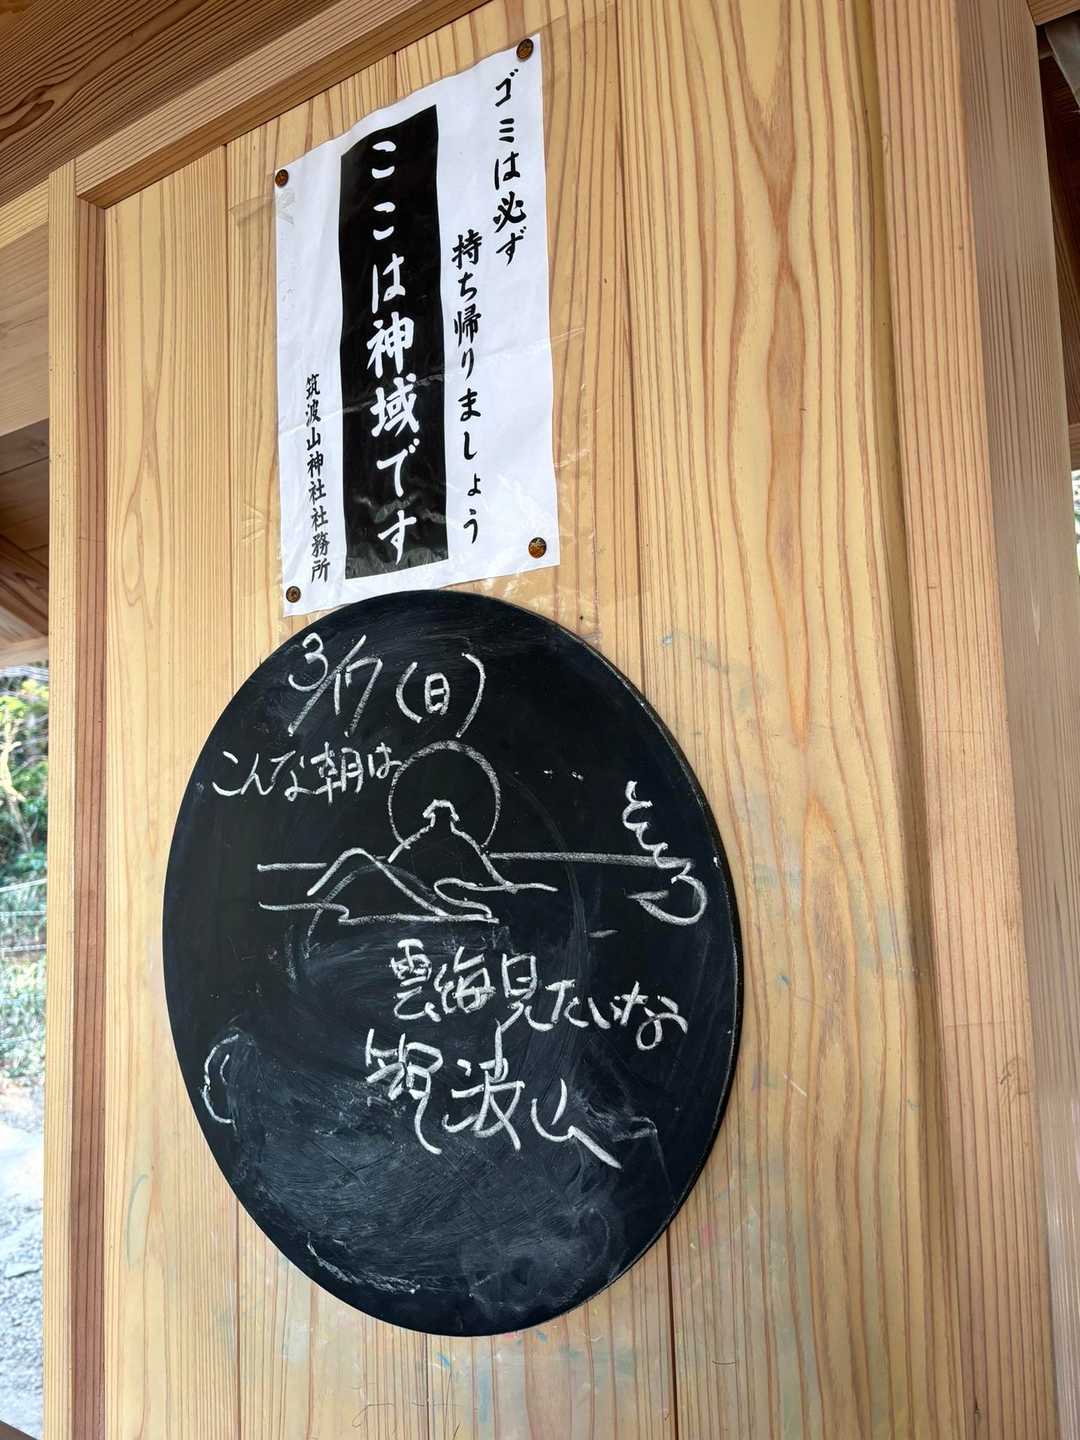 ゴミは必ず
持ち帰りましょう
ここは神域です
筑波山神社社務所
3/17(日)
こんな朝は
雲海見たいな
筑波山